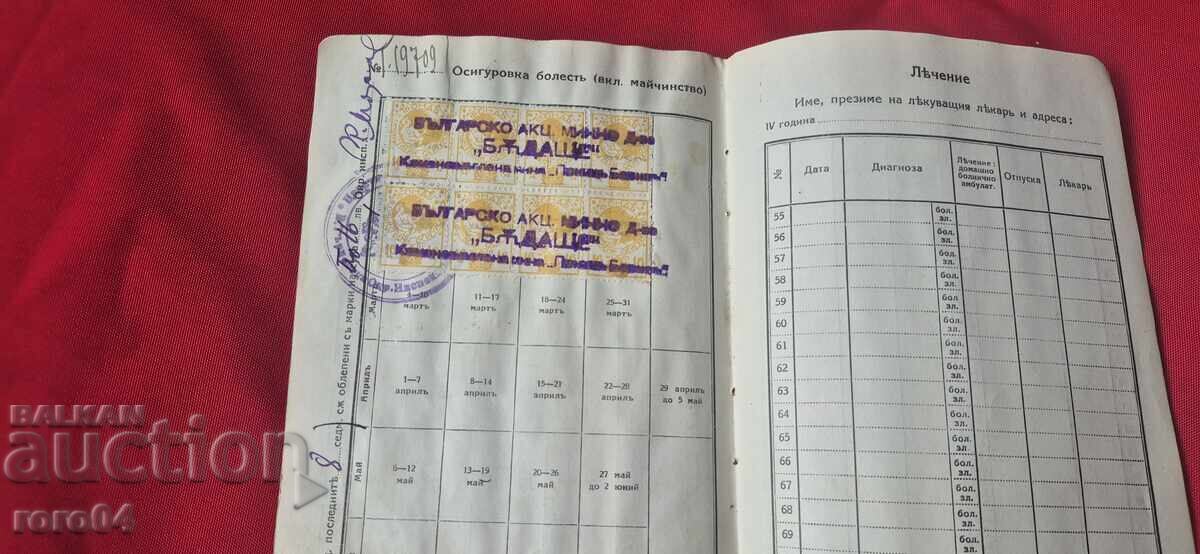 № 19709
Осигуровка болесть (вкл. майчинство)
БЪЛГАРСКО АКЦ. МИННО Д-во
„БѪДАЩЕ"
БЪЛГАРСКО АКЦ. МИННО Д-во
„БѪДАЩЕ"
11—17 мартъ
18—24 мартъ
25—31 мартъ
Априлъ
1—7 априлъ
8—14 априлъ
15—21 априлъ
22—28 априлъ
29 априлъ до 5 май
Май
6—12 май
13—19 май
20—26 май
27 май до 2 юний
последнитѣ 8 седм. сѫ облепени съ марки
лв. Окр. инсп.
Лѣчение
Име, презиме на лѣкуващия лѣкарь и адреса:
IV година
№
Дата
Диагноза
Лѣчение: домашно болнично амбулат.
Отпуска
Лѣкарь
55 бол. зл.
56 бол. зл.
57 бол. зл.
58 бол. зл.
59 бол. зл.
60 бол. зл.
61 бол. зл.
62 бол. зл.
63 бол. зл.
64 бол. зл.
65 бол. зл.
66 бол. зл.
67 бол. зл.
68 бол. зл.
69 бол. зл.
BALKAN
auction
roro04